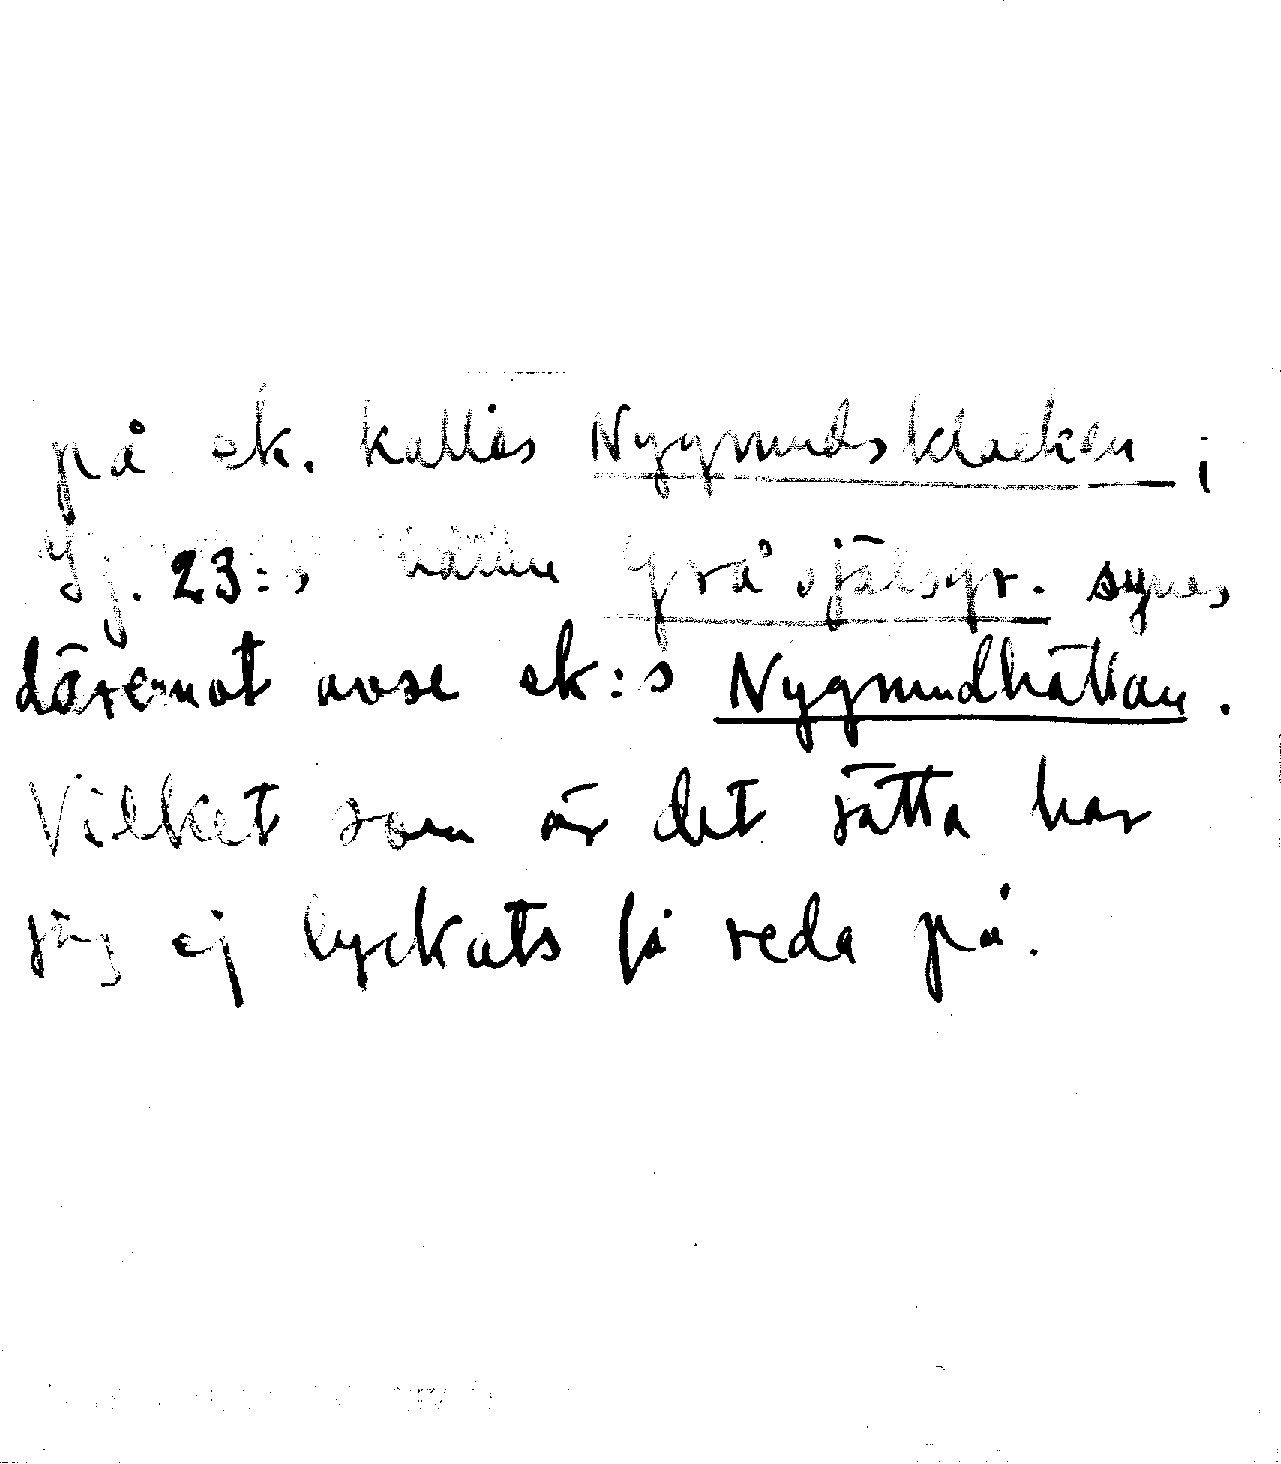 på ek. kallas Nygrundsklacken;
Sj. 23:s namn Gråsjälsgr. synes
däremot avse ek:s Nygrundhällan.
Vilket som är det rätta har
jag ej lyckats få reda på.